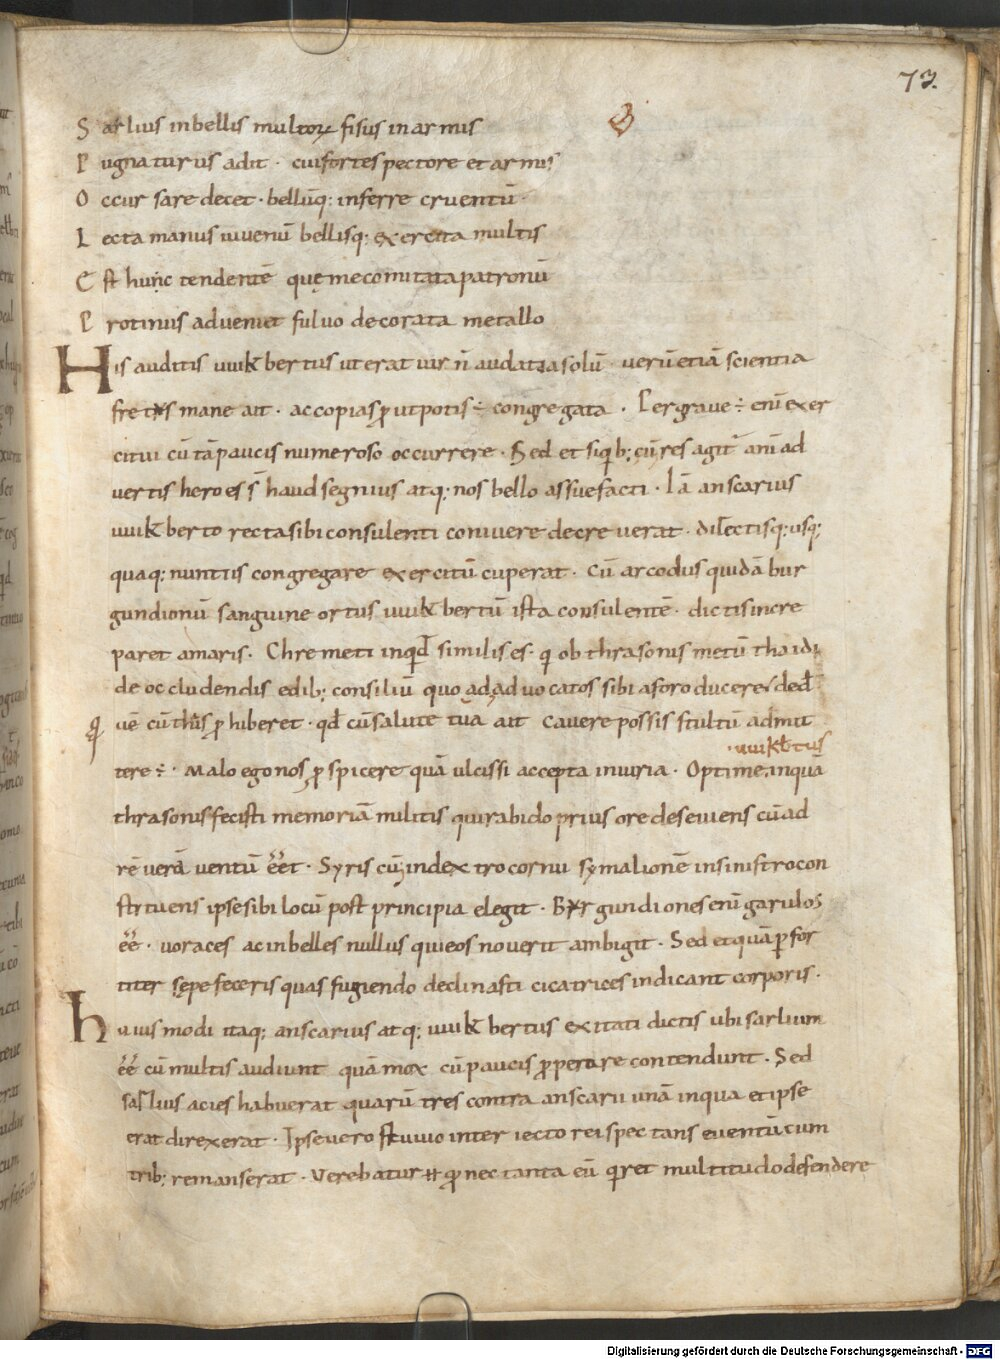 73.
Sarlius inbellis multorꝝ fisus in armis
Pugnaturus adit · cui fortes pectore et armis
Occursare decet · bellūq; inferre cruentū ·
Lecta manus iuvenū bellisq; exercita multis
Est hunc tendentē quę me comitata patronū
Protinus adveniet fulvo decorata metallo
His auditis uuikbertus ut erat vir n̄ audatia solū · verū etiā scientia
fretus mane ait · ac copias ꝓut potis ÷ congregata · Pergrave ÷ eni exer
citui cū tā paucis numeroso occurrere · Sed et siqib; cū res agit̄ ani ad
vertis heroes s̄ haud segnius atq; nos bello assuefacti · Iā anscarius
uuikberto recta sibi consulenti conivere decreverat · dilectisq; usq;
quaq; nuntiis congregare exercitū cuperat · Cū arcodus quidā bur
gundionū sanguine ortus uuikbertū ista consulentē · dictis incre
paret amaris · Chremeti inqd̄ similis es · qi ob thrasonis metū thaidi
de occludendis edib; consiliū quo ad advocatos sibi a foro duceret ded̄
qi
uē cū thīs ꝓhiberet · qd̄ cū salute tua ait cavere possis stultū admit
·uuikb̄tus
tere ÷ · Malo ego nos ꝓspicere quā ulcissi accepta iniuria · Optime inquā
thrasonis fecisti memoriā militis qui rabido prius ore deseviens cū ad
rē verā ventū eēt · Syriscū index tro cornu symalionē in sinistro con
stituens ipse sibi locū post principia elegit · Burgundiones eni garulos
eē · voraces ac inbelles nullus qui eos noverit ambigit · Sed et quā ꝑfor
titer sępe feceris quas fugiendo declinasti cicatrices indicant corporis ·
huiusmodi itaq; anscarius atq; uuikbertus exitati dictis ubi sarlium
eē cū multis audiunt quā mox cū paucis ꝓperare contendunt · Sed
sarlius acies habuerat quarū tres contra anscarii unā in qua et ipse
erat direxerat · Ipse vero fluvio interiecto rei spectans eventū cum
trib; remanserat · Verebatur ꝓ nec tanta eū qiret multitudo defendere
Digitalisierung gefördert durch die Deutsche Forschungsgemeinschaft - DFG